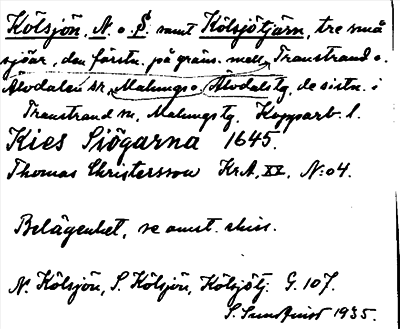 Kölsjön, N. o. S. samt Kölsjötjärn, tre små
sjöar, den förstn. på gräns. mell. Transtrand o.
Älvdalen sn, Malungs o. Älvdals tg, de sistn. i
Transtrand sn, Malungs tg. Kopparb. l.
Kies Siögarna 1645.
Thomas Christersson KrA, XX, N:o 4.
Belägenhet, se omst. skiss.
N. Kölsjön, S. Kölsjön, Kölsjötj. G. 107.
S. Sundqvist 1935.